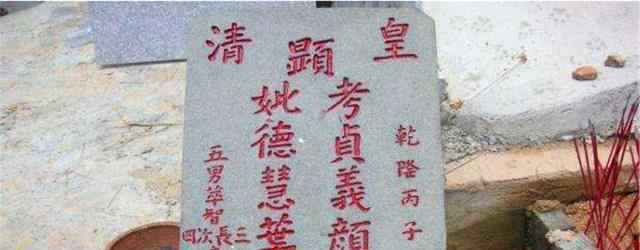 皇清
顯
乾隆丙子
考貞義顏
妣德慧葉
五男萃智
三長次四